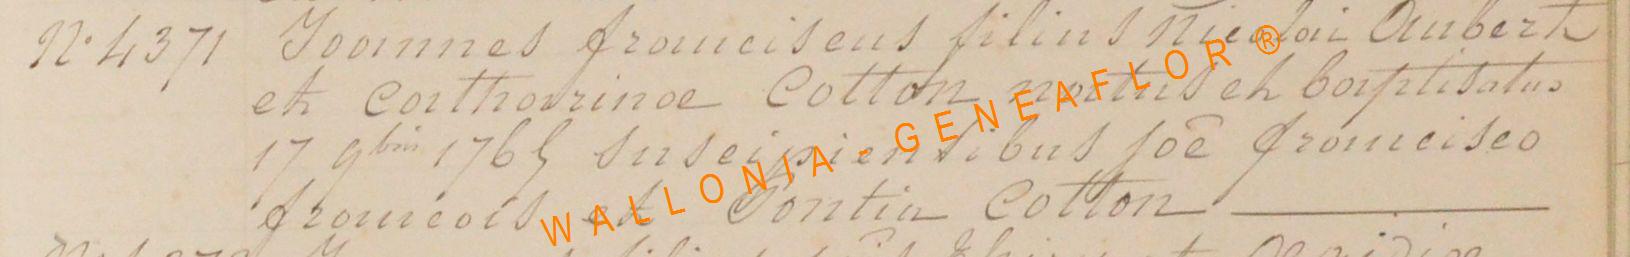 N° 4371 Joannes franciscus filius Nicolai Aubert
et Catharinae Cotton natus et baptisatus
17 9bris 1765 suscipientibus joē francisco
francois et Pontia Cotton
WALLONIA-GENEAFLOR®